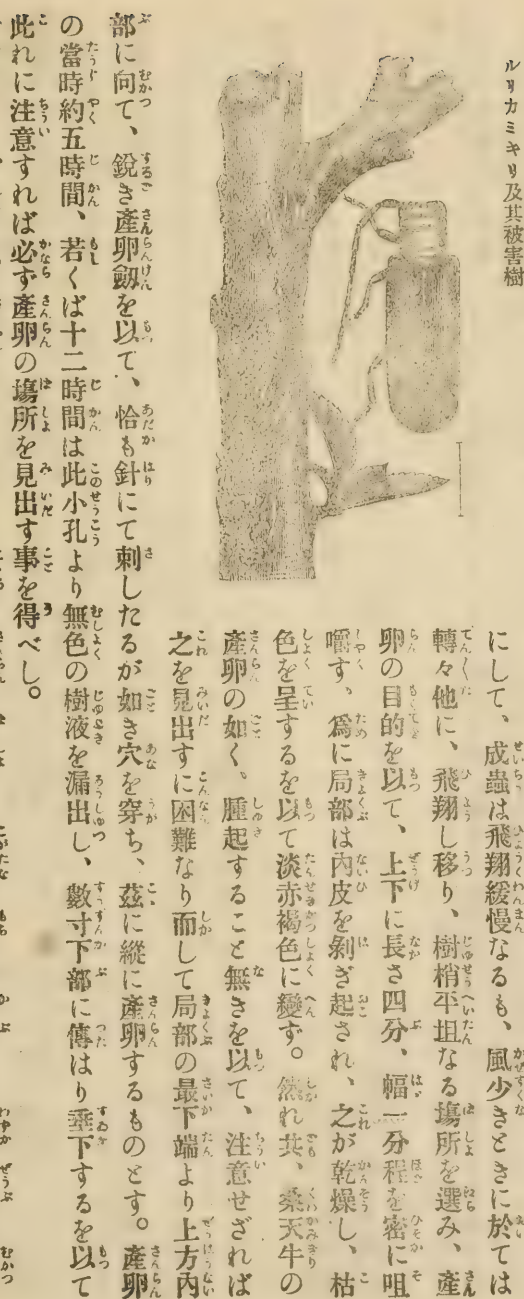 ルリカミキリ及其被害樹
にして、成蟲は飛翔緩慢なるも、風少きときに於ては
轉々他に、飛翔し移り、樹梢平坦なる塲所を選み、產
卵の目的を以て、上下に長さ四分、幅一分程を密に咀
嚼す、爲に局部は內皮を剝ぎ起され、之が乾燥し、枯
色を呈するを以て淡赤褐色に變ず。然れ共、桑天牛の
產卵の如く。腫起すること無きを以て、注意せざれば
之を見出すに困難なり而して局部の最下端より上方內
部に向て、銳き產卵劔を以て、恰も針にて刺したるが如き穴を穿ち、茲に縱に產卵するものとす。產卵
の當時約五時間、若くば十二時間は此小孔より無色の樹液を漏出し、數寸下部に傳はり垂下するを以て
此れに注意すれば必ず產卵の塲所を見出す事を得べし。